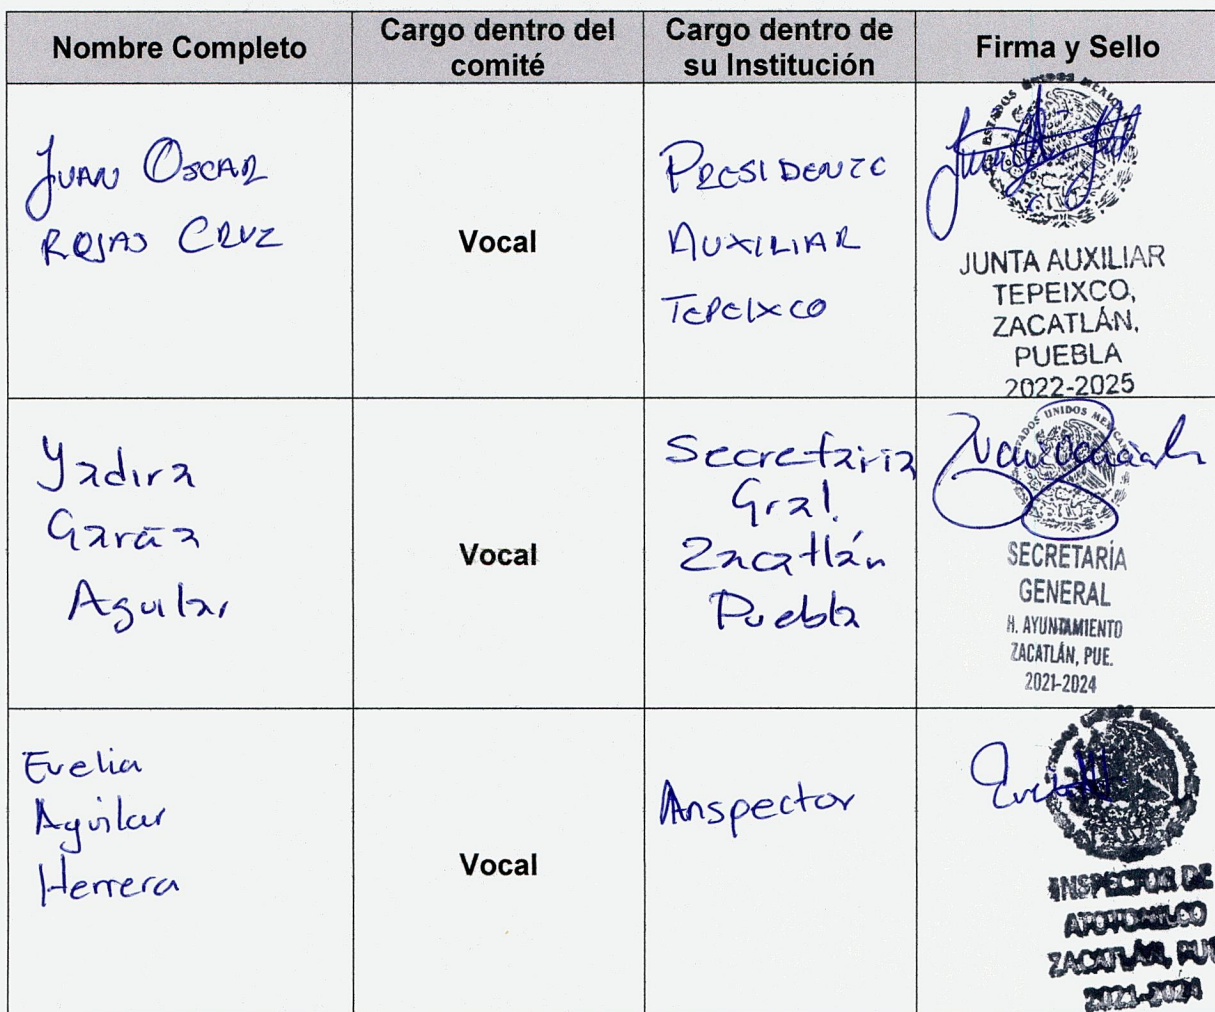 Nombre Completo
Cargo dentro del
comité
Cargo dentro de
su Institución
Firma y Sello
JUAN OSCAR
ROJAS CRUZ
Vocal
PRESIDENTE
AUXILIAR
TEPEIXCO
ESTADOS UNIDOS MEXICANOS
JUNTA AUXILIAR
TEPEIXCO,
ZACATLÁN,
PUEBLA
2022-2025
Yadira
García
Aguilar
Vocal
Secretaria
Gral.
Zacatlán
Puebla
ESTADOS UNIDOS MEXICANOS
SECRETARÍA
GENERAL
H. AYUNTAMIENTO
ZACATLÁN, PUE.
2021-2024
Evelia
Aguilar
Herrera
Vocal
Anspector
INSPECTOR DE
ZACATLÁN, PUE
2021-2024